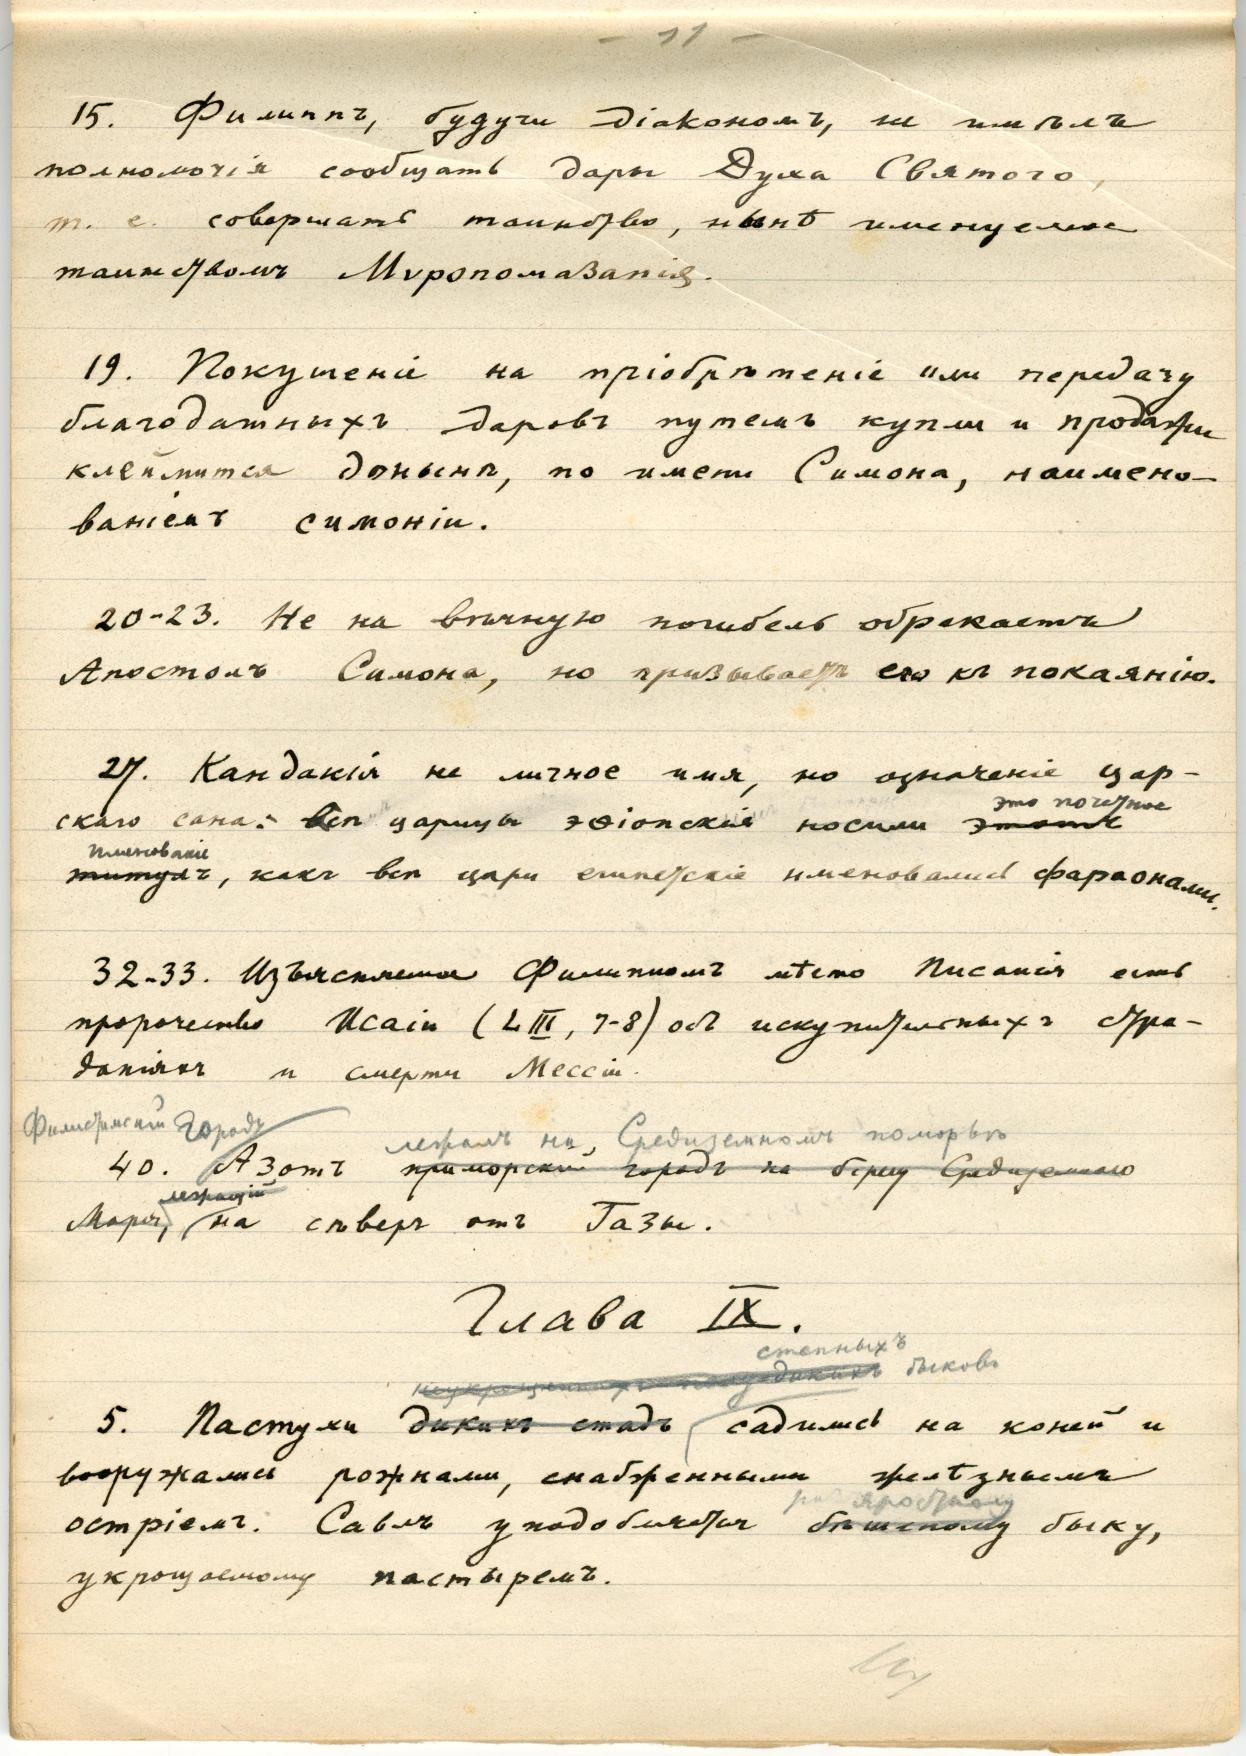 - 11 -
15. Филиппъ, будучи діакономъ, не имѣлъ
полномочія сообщать дары Духа Святого,
т. е. совершать таинство, нынѣ именуемое
таинствомъ Мvропомазанія.
19. Покушеніе на пріобрѣтеніе или передачу
благодатныхъ даровъ путемъ купли и продажи
клеймится донынѣ, по имени Симона, наимено-
ваніемъ симоніи.
20-23. Не на вѣчную погибель обрекаетъ
Апостолъ Симона, но призываетъ его къ покаянію.
27. Кандакія не личное имя, но означеніе цар-
это почетное
скаго сана: всѣ царицы эѳіопскія носили этотъ
именованіе
титулъ, какъ всѣ цари египетскіе именовались фараонами.
32-33. Изъясняемое Филиппомъ мѣсто Писанія есть
пророчество Исаіи (LIII, 7-8) объ искупительныхъ стра-
даніяхъ и смерти Мессіи.
Филистимскій городъ
лежалъ на Средиземномъ поморьѣ
40. Азотъ приморскій городъ на берегу Средиземнаго
лежащій
Моря, на сѣверъ отъ Газы.
Глава IX.
степныхъ
неукрощенныхъ полудикихъ быковъ
5. Пастухи дикихъ стадъ садились на коней и
вооружались рожнами, снабженными желѣзнымъ
яростному
остріемъ. Савлъ уподобляется бѣшеному быку,
укрощаемому пастыремъ.